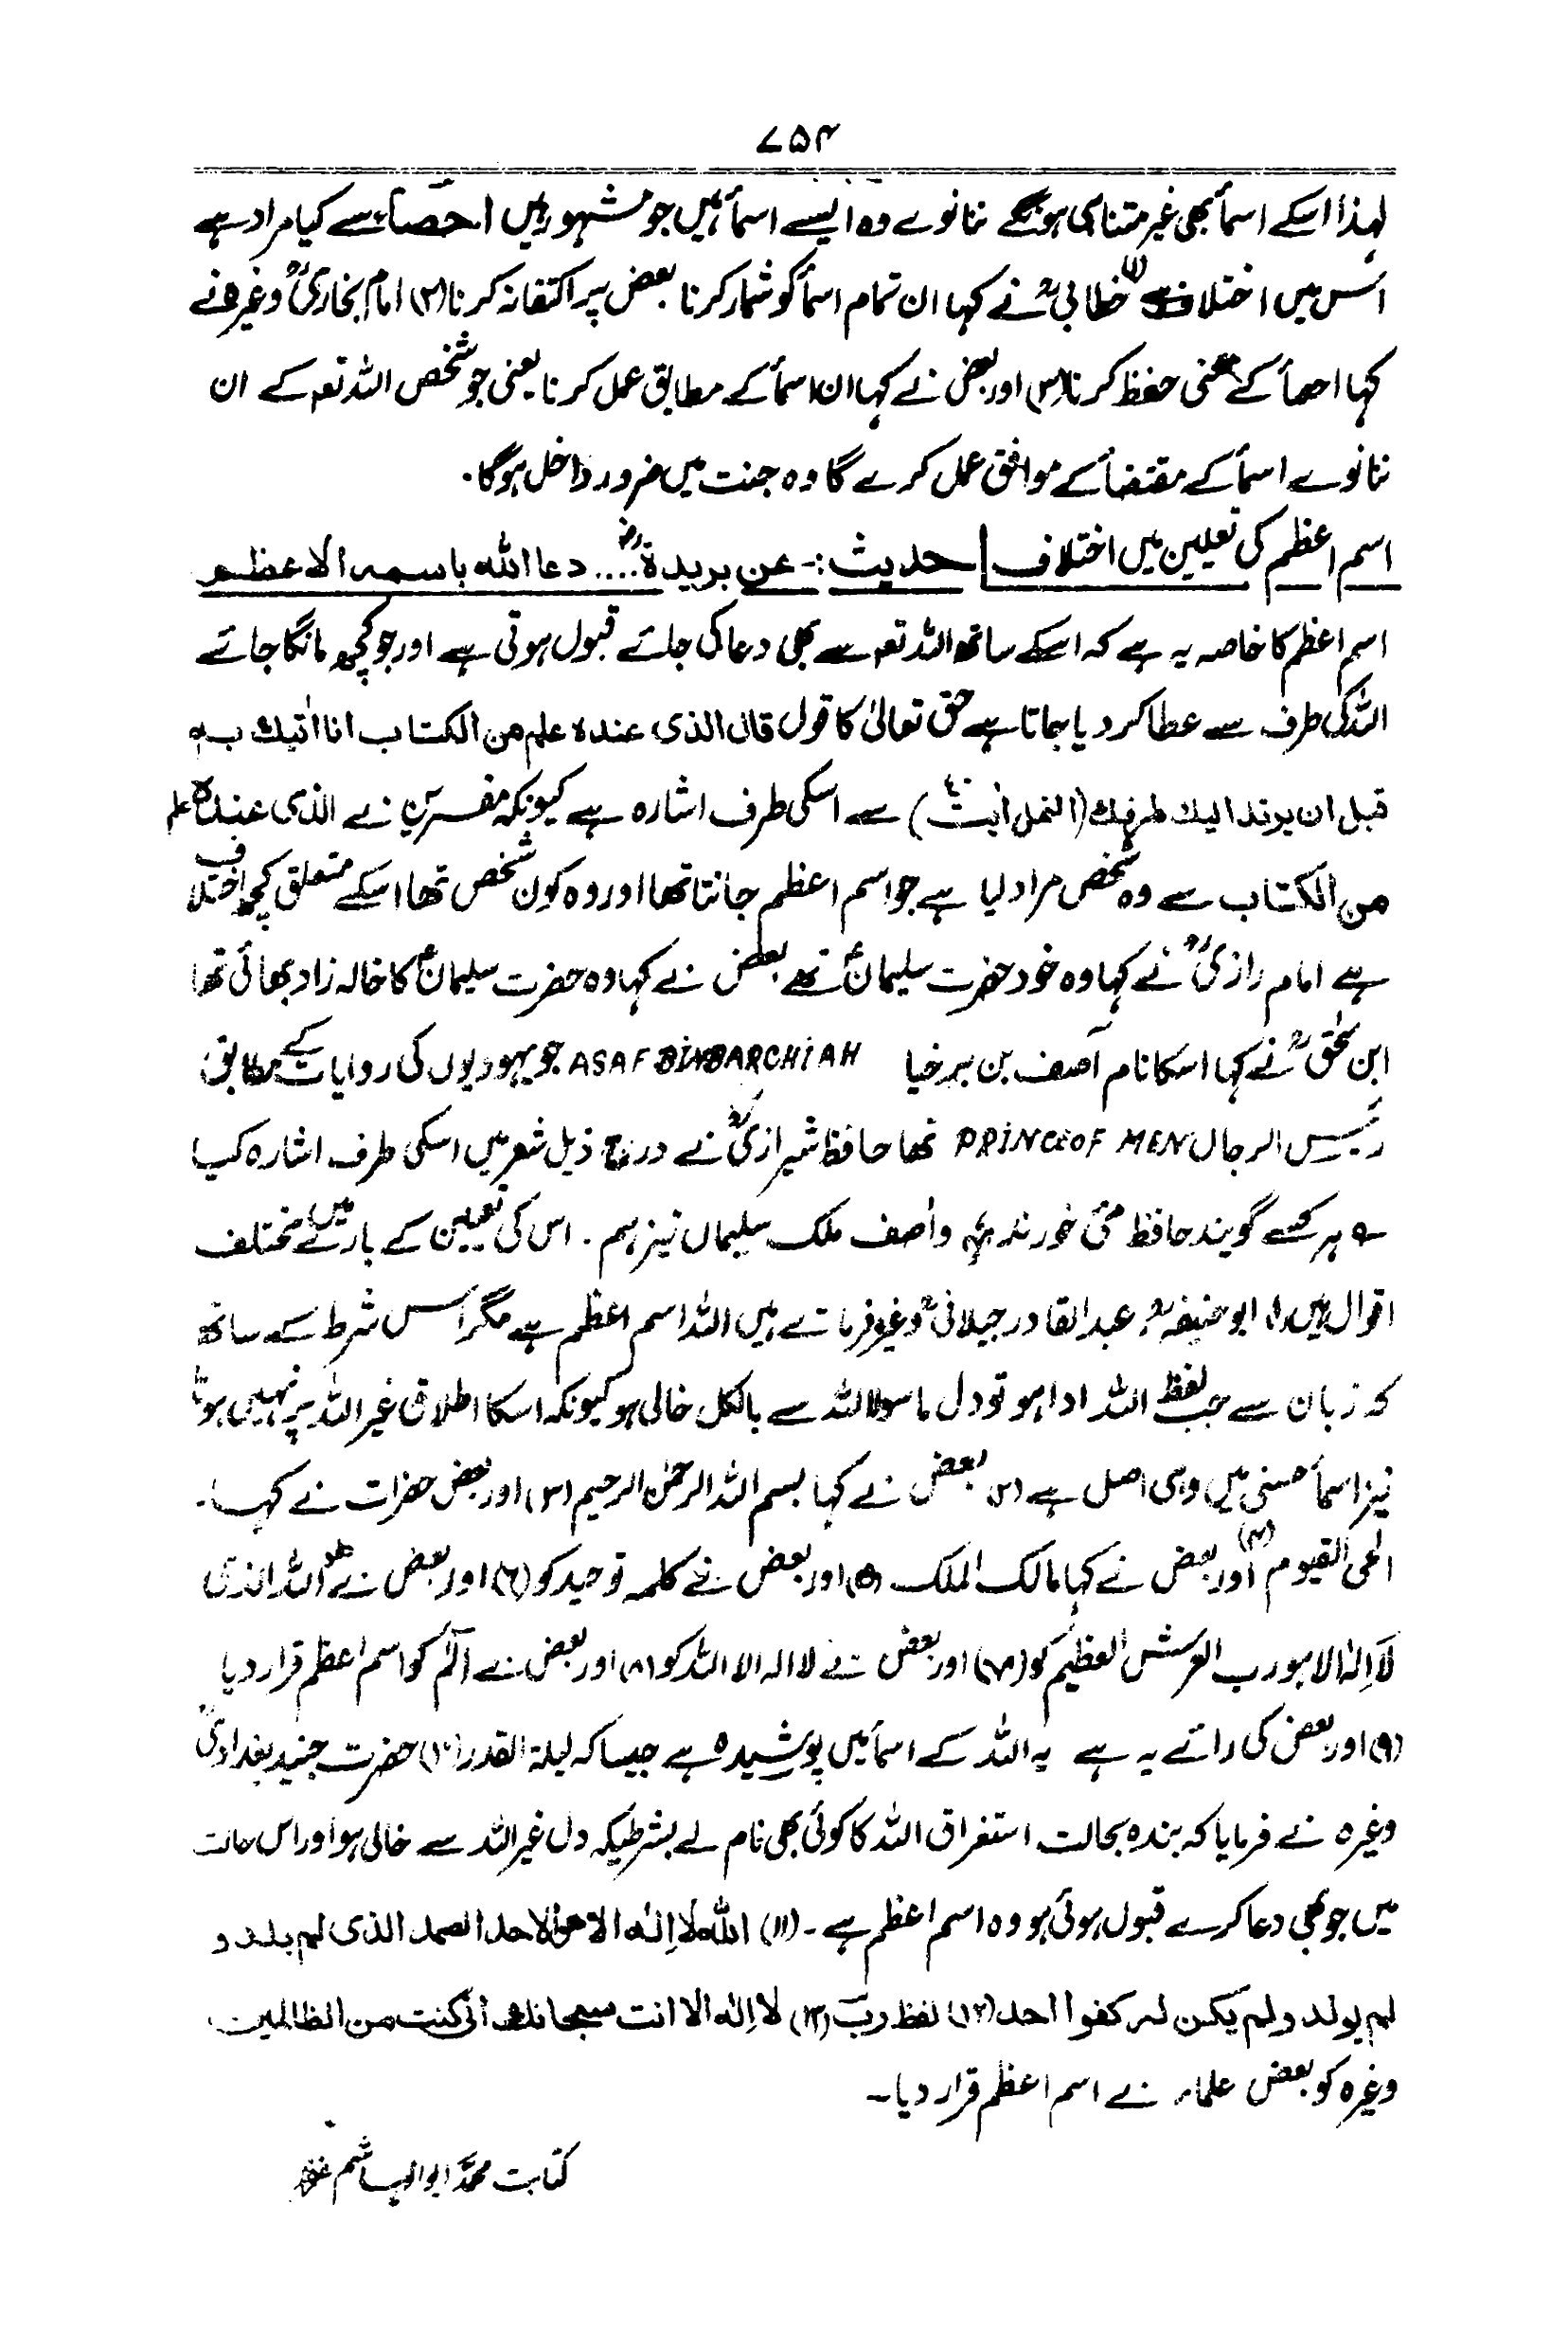 ۷۵۴
لہذا اسکے اسمأ بھی غیر متناہی ہونگے ننانوے وہ ایسے اسمأ ہیں جو مشہور ہیں احصاء سے کیا مراد ہے
اس میں اختلاف ہے (۱) خطابیؒ نے کہا ان تمام اسمأ کو شمار کرنا بعض پر اکتفا نہ کرنا (۲) امام بخاریؒ وغیرہ نے
کہا احصأ کے معنی حفظ کرنا (۳) اور بعض نے کہا ان اسمأ کے مطابق عمل کرنا یعنی جو شخص اللہ تعہ کے ان
ننانوے اسمأ کے مقتضأ کے موافق عمل کرے گا وہ جنت میں ضرور داخل ہوگا۔
اسم اعظم کی تعیین میں اختلاف | حدیث :- عن بریدۃؓ .... دعا اللہ باسمہ الاعظم
اسم اعظم کا خاصہ یہ ہے کہ اسکے ساتھ اللہ تعہ سے بھی دعا کی جائے قبول ہوتی ہے اور جو کچھ مانگا جائے
اللہ کی طرف سے عطا کر دیا جاتا ہے حق تعالیٰ کا قول قال الذی عندہ علم من الکتاب انا اٰتیك بہ
قبل ان یرتد الیك طرفك (النمل اٰیت ۴۰) سے اسکی طرف اشارہ ہے کیونکہ مفسرین نے الذی عندہ علم
من الکتاب سے وہ شخص مراد لیا ہے جو اسم اعظم جانتا تھا اور وہ کون شخص تھا اسکے متعلق کچھ اختلاف
ہے امام رازیؒ نے کہا وہ خود حضرت سلیمانؑ تھے بعض نے کہا وہ حضرت سلیمانؑ کا خالہ زاد بھائی تھا
ابن سحٰقؒ نے کہا اسکا نام آصف بن برخیا ASAF BINBARCHIAH جو یہودیوں کی روایات کے مطابق
رئیس الرجال PRINCE OF MEN تھا حافظ شیرازیؒ نے درج ذیل شعر میں اسکی طرف اشارہ کیا
؎ ہر کسے گویند حافظ مئ خورند واٰصف ملک سلیماں نیز ہم . اس کی تعیین کے بارے میں مختلف
اقوال ہیں (۱) ابو حنیفہؒ، عبدالقادر جیلانیؒ وغیرہ فرماتے ہیں اللہ اسم اعظم ہے مگر اس شرط کے ساتھ
کہ زبان سے جب لفظ اللہ ادا ہو تو دل ماسوا اللہ سے بالکل خالی ہو کیونکہ اسکا اطلاق غیر اللہ پر نہیں ہوتا
نیز اسمأ حسنیٰ میں وہی اصل ہے (۲) بعض نے کہا بسم اللہ الرحمٰن الرحیم (۳) اور بعض حضرات نے کہا۔
الحی القیوم (۴) اور بعض نے کہا مالک الملک (۵) اور بعض نے کلمہ توحید کو (۶) اور بعض نے اللہ الذی
لاَ اِلٰہ الا ہو رب العرش العظیم کو (۷) اور بعض نے لا الہ الا اللہ کو (۸) اور بعض نے آلم کو اسم اعظم قرار دیا
(۹) اور بعض کی رائے یہ ہے یہ اللہ کے اسمأ میں پوشیدہ ہے جیسا کہ لیلۃ القدر (۱۰) حضرت جنید بغدادیؒ
وغیرہ نے فرمایا کہ بندہ بحالت استغراق اللہ کا کوئی بھی نام لے بشرطیکہ دل غیر اللہ سے خالی ہو اور اس حالت
میں جو بھی دعا کرے قبول ہوئی ہو وہ اسم اعظم ہے۔ (۱۱) اللہ لا اِلٰہ الا ھو الاحد الصمد الذی لم یلد و
لم یولد و لم یکن لہ کفوا احد (۱۲) لفظ ربّ (۱۳) لا اِلٰہ الا انت سبحانك انی کنت من الظالمین
وغیرہ کو بعض علماء نے اسم اعظم قرار دیا۔
کتابت محمد ابو الہاشم